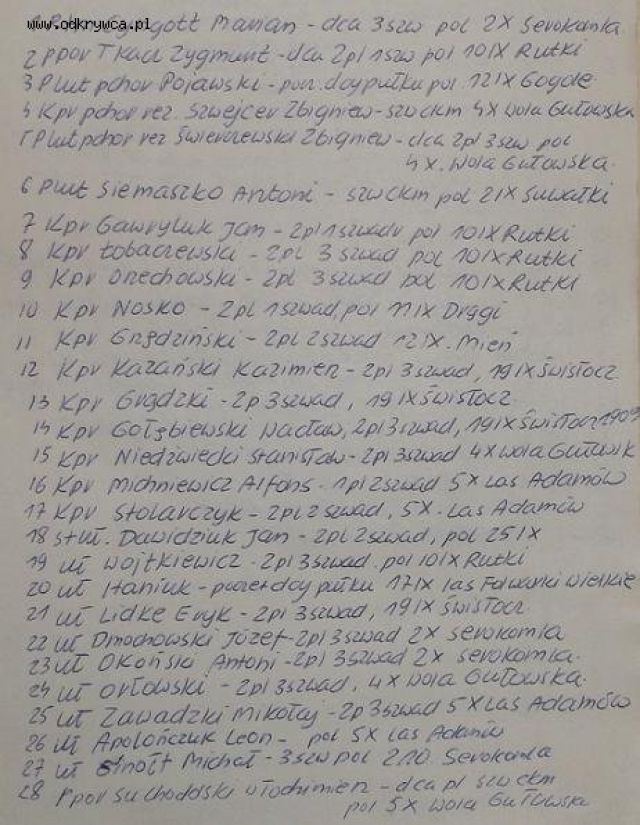 www.odkrywca.pl
gott Marian - dca 3szw pol 2X Serokomla
2 ppor Tkacz Zygmunt - dca 2pl 1szw pol 10IX Rutki
3 Plut pchor Pojawski - poczt. dcy pułku pol. 12IX
4 Kpr pchor rez. Szwejcer Zbigniew - szw ckm 4X Wola Gułowska
5 Plut pchor rez Świerczewski Zbigniew - dca 2pl 3szw pol
4X. Wola Gułowska
6 Plut Siemaszko Antoni - szw ckm pol 21X Suwałki
7 Kpr Gawryluk Jan - 2pl 1szwadr pol 10IX Rutki
8 Kpr Łobaczewski - 2pl 3 szwad pol 10IX Rutki
9 Kpr Orzechowski - 2pl 3szwad pol 10IX Rutki
10 Kpr Nosko - 2pl 1szwad, pol 11IX Drągi
11 Kpr Grądziński - 2pl 2szwad 12IX. Mień
12 Kpr Kazański Kazimierz - 2pl 3szwad, 19IX Świsłocz
13 Kpr Grądzki - 2p 3szwad, 19IX Świsłocz
14 Kpr Gołębiewski Wacław, 2pl 3szwad, 19IX Świsłocz
15 Kpr Niedźwiecki Stanisław - 2pl 3szwad 4X Wola Gułowsk
16 Kpr Michniewicz Alfons - 1pl 2szwad 5X Las Adamów
17 Kpr Stolarczyk - 2pl 2szwad, 5X. Las Adamów
18 st uł. Dawidziuk Jan - 2pl 2szwad, pol 25IX
19 uł Wojtkiewicz - 2pl 3szwad. pol 10IX Rutki
20 uł Haniuk - poczet dcy pułku 17IX las Wielkie
21 uł Lidke Eryk - 2pl 3szwad, 19IX Świsłocz
22 uł Dmochowski Józef - 2pl 3szwad 2X Serokomla
23 uł Okoński Antoni - 2pl 3szwad 2X Serokomla.
24 uł Orłowski - 2pl 3szwad, 4X Wola Gułowska.
25 uł Zawadzki Mikołaj - 2p 3szwad 5X Las Adamów
26 uł Apolończuk Leon - pol 5X Las Adamów
27 uł Michał - 3szw pol 2 10. Serokomla
28 ppor Suchodolski Włodzimierz - dca pl szw ckm
pol 5X Wola Gułowska